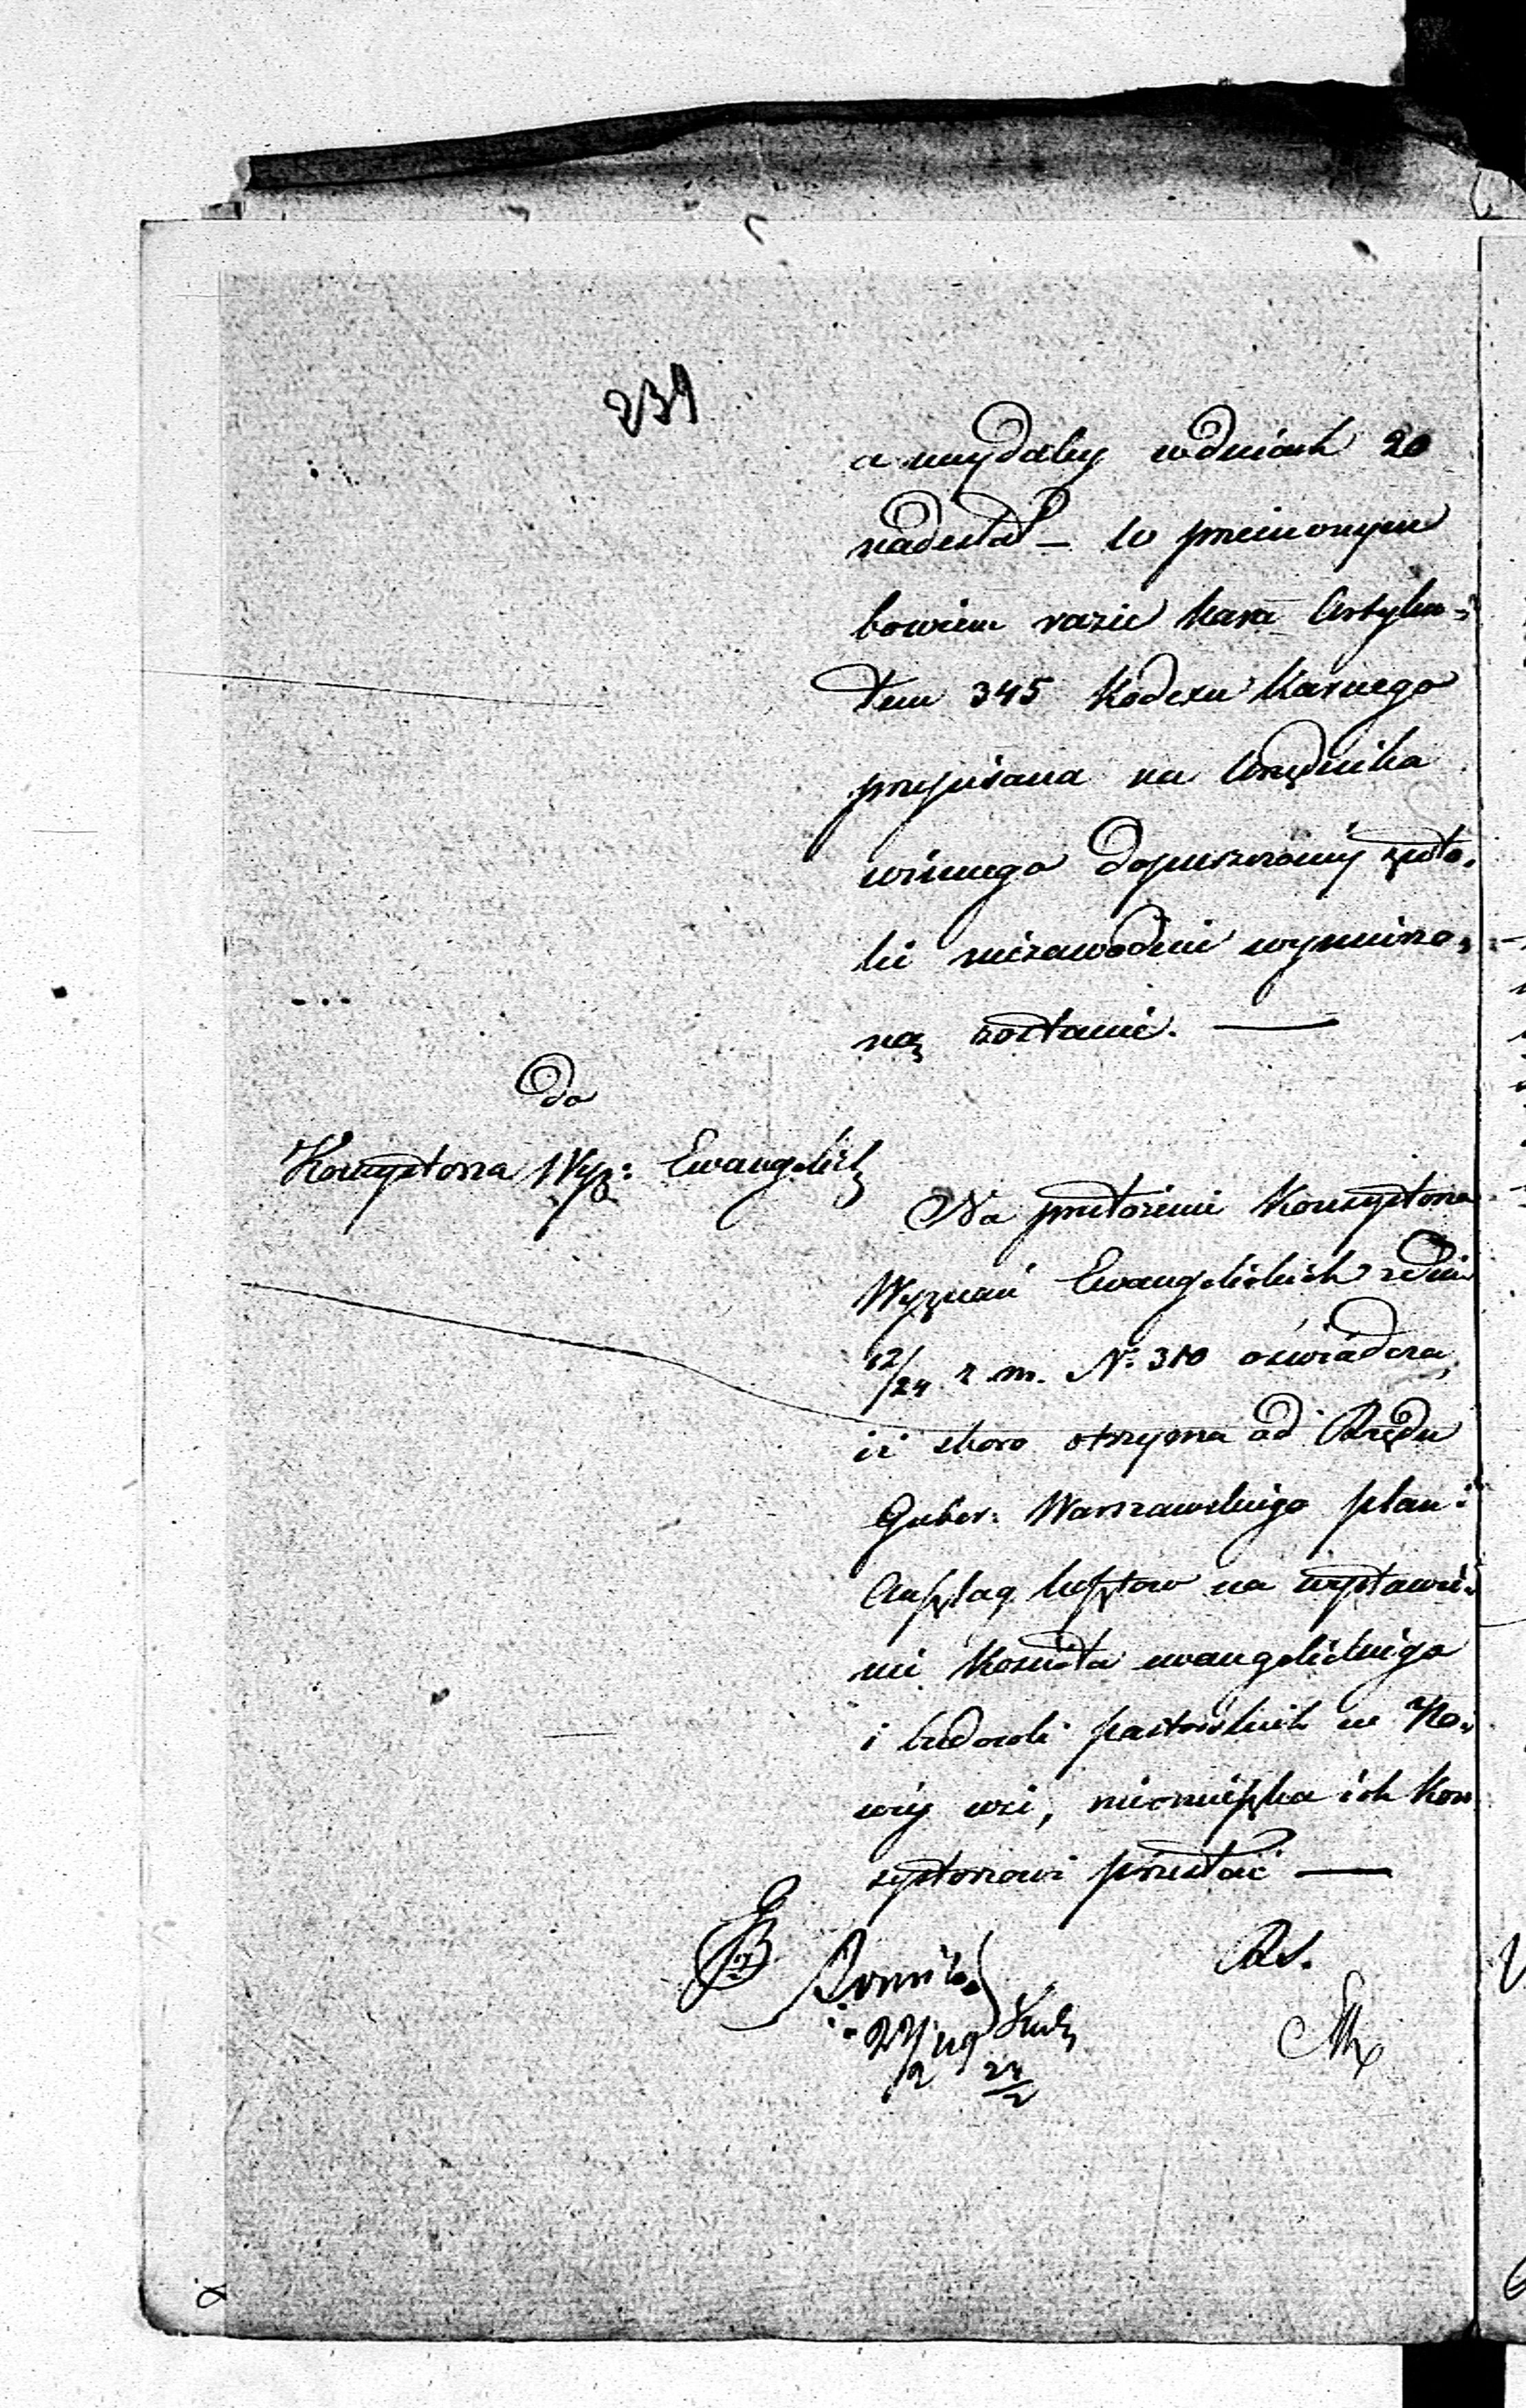 239
a naydaley w dniach 20
nadesłał – w przeciwnym
bowiem razie kara Artyku-
łem 345 Kodexu Karnego
przepisana na Urzędnika
winnego dopuszczonéj zwło-
ki niezawodnie wymierzo-
ną zostanie. —
do
Konsystorza Wyz: Ewangelick
Na przełożenie Konsystorza
Wyznań Ewangelickich z dnia
12/24 z. m. N: 310 oświadcza,
iż skoro otrzyma od Rządu
Guber: Warszawskiego plan i
Anszlag kosztow na wystawie-
nie Kościoła ewangelickiego
i budowli pastorskich w No-
wéj wsi, nieomieszka ich Kon
systorzowi przesłać —
22/2 49
24/2